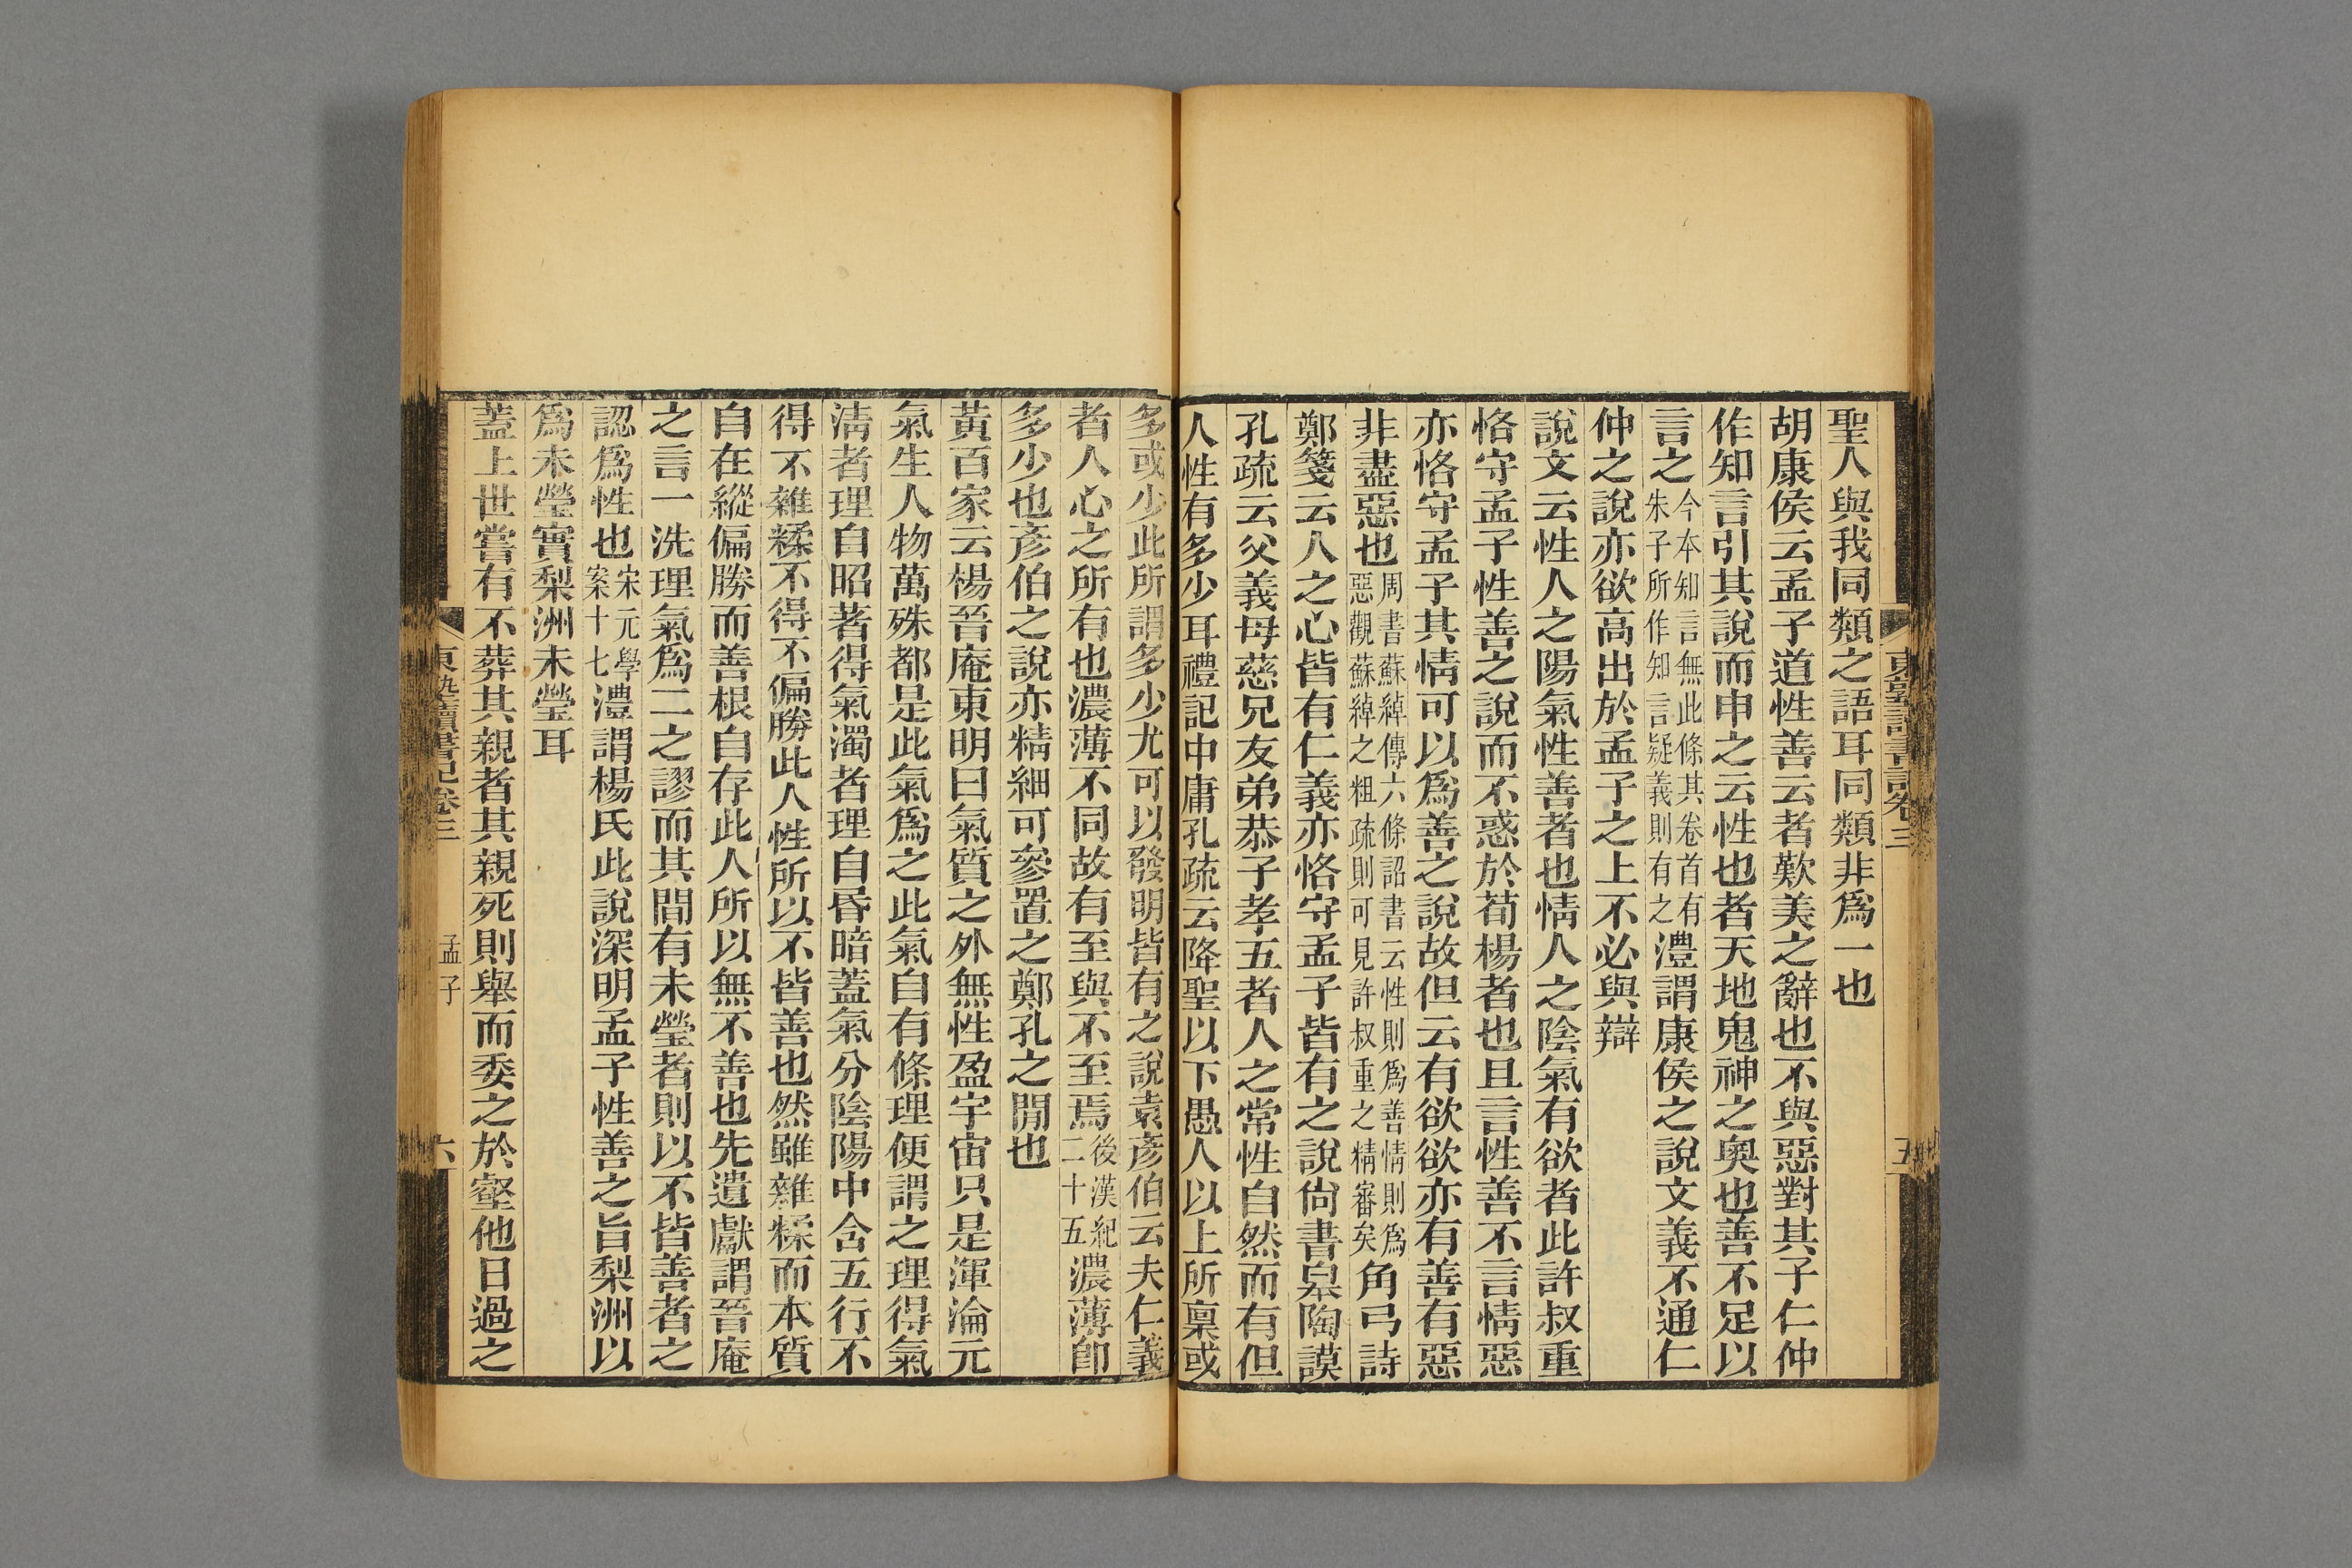 聖人與我同類之語耳同類非爲一也
胡康侯云孟子道性善云者歎美之辭也不與惡對其子仁仲
作知言引其說而申之云性也者天地鬼神之奧也善不足以
言之今本知言無此條其卷首有朱子所作知言疑義則有之澧謂康侯之說文義不通仁
仲之說亦欲高出於孟子之上不必與辯
說文云性人之陽氣性善者也情人之陰氣有欲者此許叔重
恪守孟子性善之說而不惑於荀楊者也且言性善不言情惡
亦恪守孟子其情可以爲善之說故但云有欲欲亦有善有惡
非盡惡也周書蘇綽傳六條詔書云性則爲善情則爲惡觀蘇綽之粗疏則可見許叔重之精審矣角弓詩
鄭箋云人之心皆有仁義亦恪守孟子皆有之說尙書皋陶謨
孔疏云父義母慈兄友弟恭子孝五者人之常性自然而有但
人性有多少耳禮記中庸孔疏云降聖以下愚人以上所稟或
多或少此所謂多少尤可以發明皆有之說袁彥伯云夫仁義
者人心之所有也濃薄不同故有至與不至焉後漢紀二十五濃薄卽
多少也彥伯之說亦精細可參置之鄭孔之閒也
黃百家云楊晉庵東明曰氣質之外無性盈宇宙只是渾淪元
氣生人物萬殊都是此氣爲之此氣自有條理便謂之理得氣
淸者理自昭著得氣濁者理自昏暗蓋氣分陰陽中含五行不
得不雜糅不得不偏勝此人性所以不皆善也然雖雜糅而本質
自在縱偏勝而善根自存此人所以無不善也先遺獻謂晉庵
之言一洗理氣爲二之謬而其間有未瑩者則以不皆善者之
認爲性也宋元學案十七澧謂楊氏此說深明孟子性善之旨梨洲以
爲未瑩實梨洲未瑩耳
蓋上世嘗有不葬其親者其親死則舉而委之於壑他日過之
東塾讀書記卷三
孟子
六